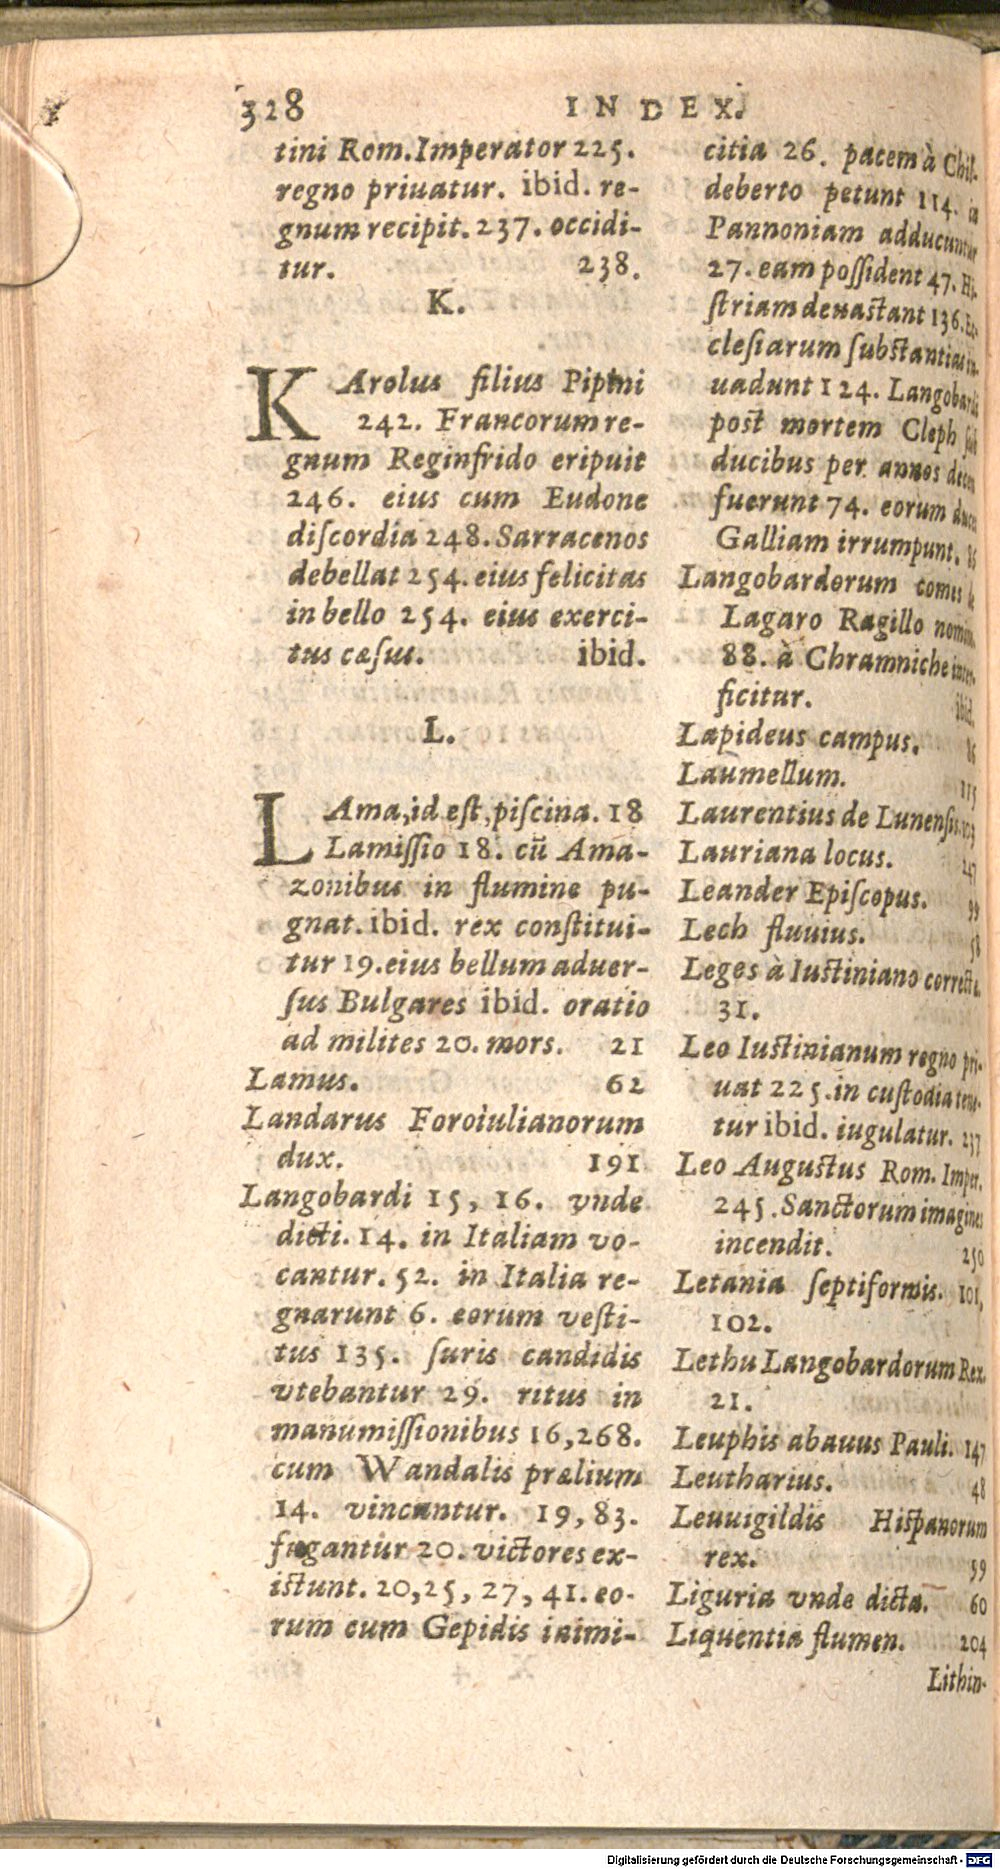 328 INDEX.
tini Rom. Imperator 225.
regno priuatur. ibid. re-
gnum recipit. 237. occidi-
tur. 238.
K.
KArolus filius Pipini
242. Francorum re-
gnum Reginfrido eripuit
246. eius cum Eudone
diſcordia 248. Sarracenos
debellat 254. eius felicitas
in bello 254. eius exerci-
tus cæſus. ibid.
L.
LAma, id eſt, piſcina. 18
Lamiſſio 18. cū Ama-
zonibus in flumine pu-
gnat. ibid. rex conſtitui-
tur 19. eius bellum aduer-
ſus Bulgares ibid. oratio
ad milites 20. mors. 21
Lamus. 62
Landarus Foroiulianorum
dux. 191
Langobardi 15, 16. vnde
dicti. 14. in Italiam vo-
cantur. 52. in Italia re-
gnarunt 6. eorum veſti-
tus 135. ſuris candidis
vtebantur 29. ritus in
manumiſſionibus 16, 268.
cum Wandalis prælium
14. vincuntur. 19, 83.
fugantur 20. victores ex-
iſtunt. 20, 25, 27, 41. eo-
rum cum Gepidis inimi-
citia 26. pacem à Chil-
deberto petunt 114. in
Pannoniam adducuntur
27. eam poſſident 47. Hi-
ſtriam deuaſtant 136. Ec-
cleſiarum ſubſtantias in-
uadunt 124. Langobardi
poſt mortem Cleph ſub
ducibus per annos decem
fuerunt 74. eorum duces
Galliam irrumpunt. 86
Langobardorum comes de
Lagaro Ragillo nomine
88. à Chramniche inter-
ficitur. ibid.
Lapideus campus. 86
Laumellum. 115
Laurentius de Lunenſis 103
Lauriana locus. 247
Leander Epiſcopus. 99
Lech fluuius. 58
Leges à Iuſtiniano correctæ.
31.
Leo Iuſtinianum regno pri-
uat 225. in cuſtodia tene-
tur ibid. iugulatur. 237
Leo Auguſtus Rom. Imper.
245. Sanctorum imagines
incendit. 250
Letania ſeptiformis. 101,
102.
Lethu Langobardorum Rex.
21.
Leuphis abauus Pauli. 147
Leutharius. 48
Leuuigildis Hiſpanorum
rex. 99
Liguria vnde dicta. 60
Liquentia flumen. 204
Lithin-
Digitalisierung gefördert durch die Deutsche Forschungsgemeinschaft - DFG